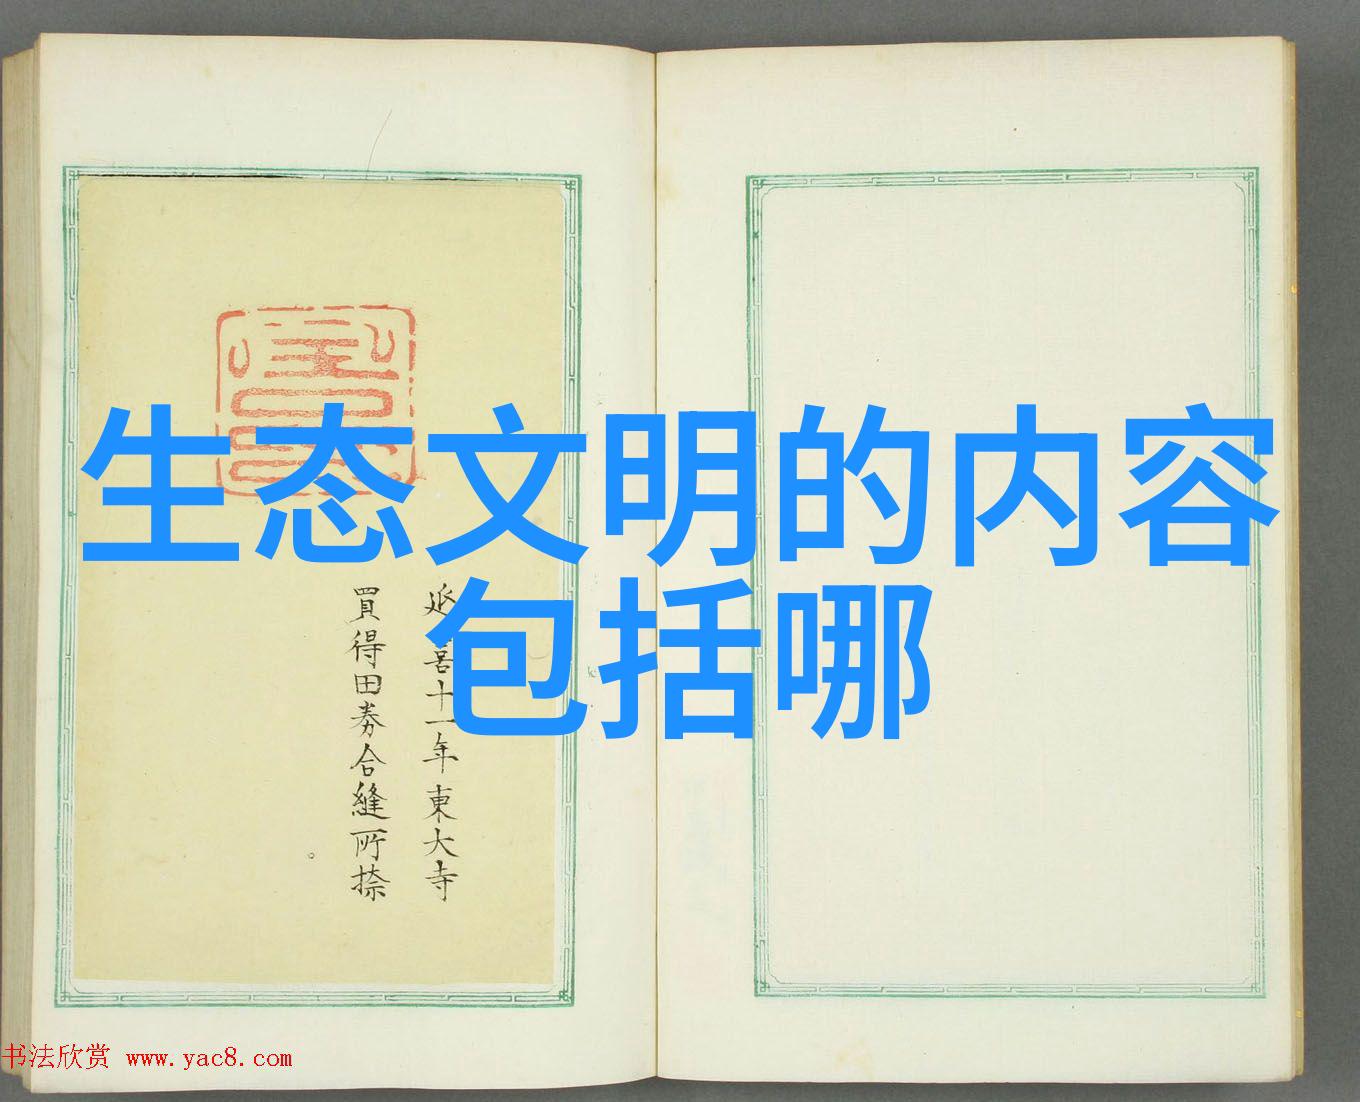 生态文明的内容
包括哪
延喜十一年東大寺
買得田券合縫所捺
书法欣赏 www.yac8.com